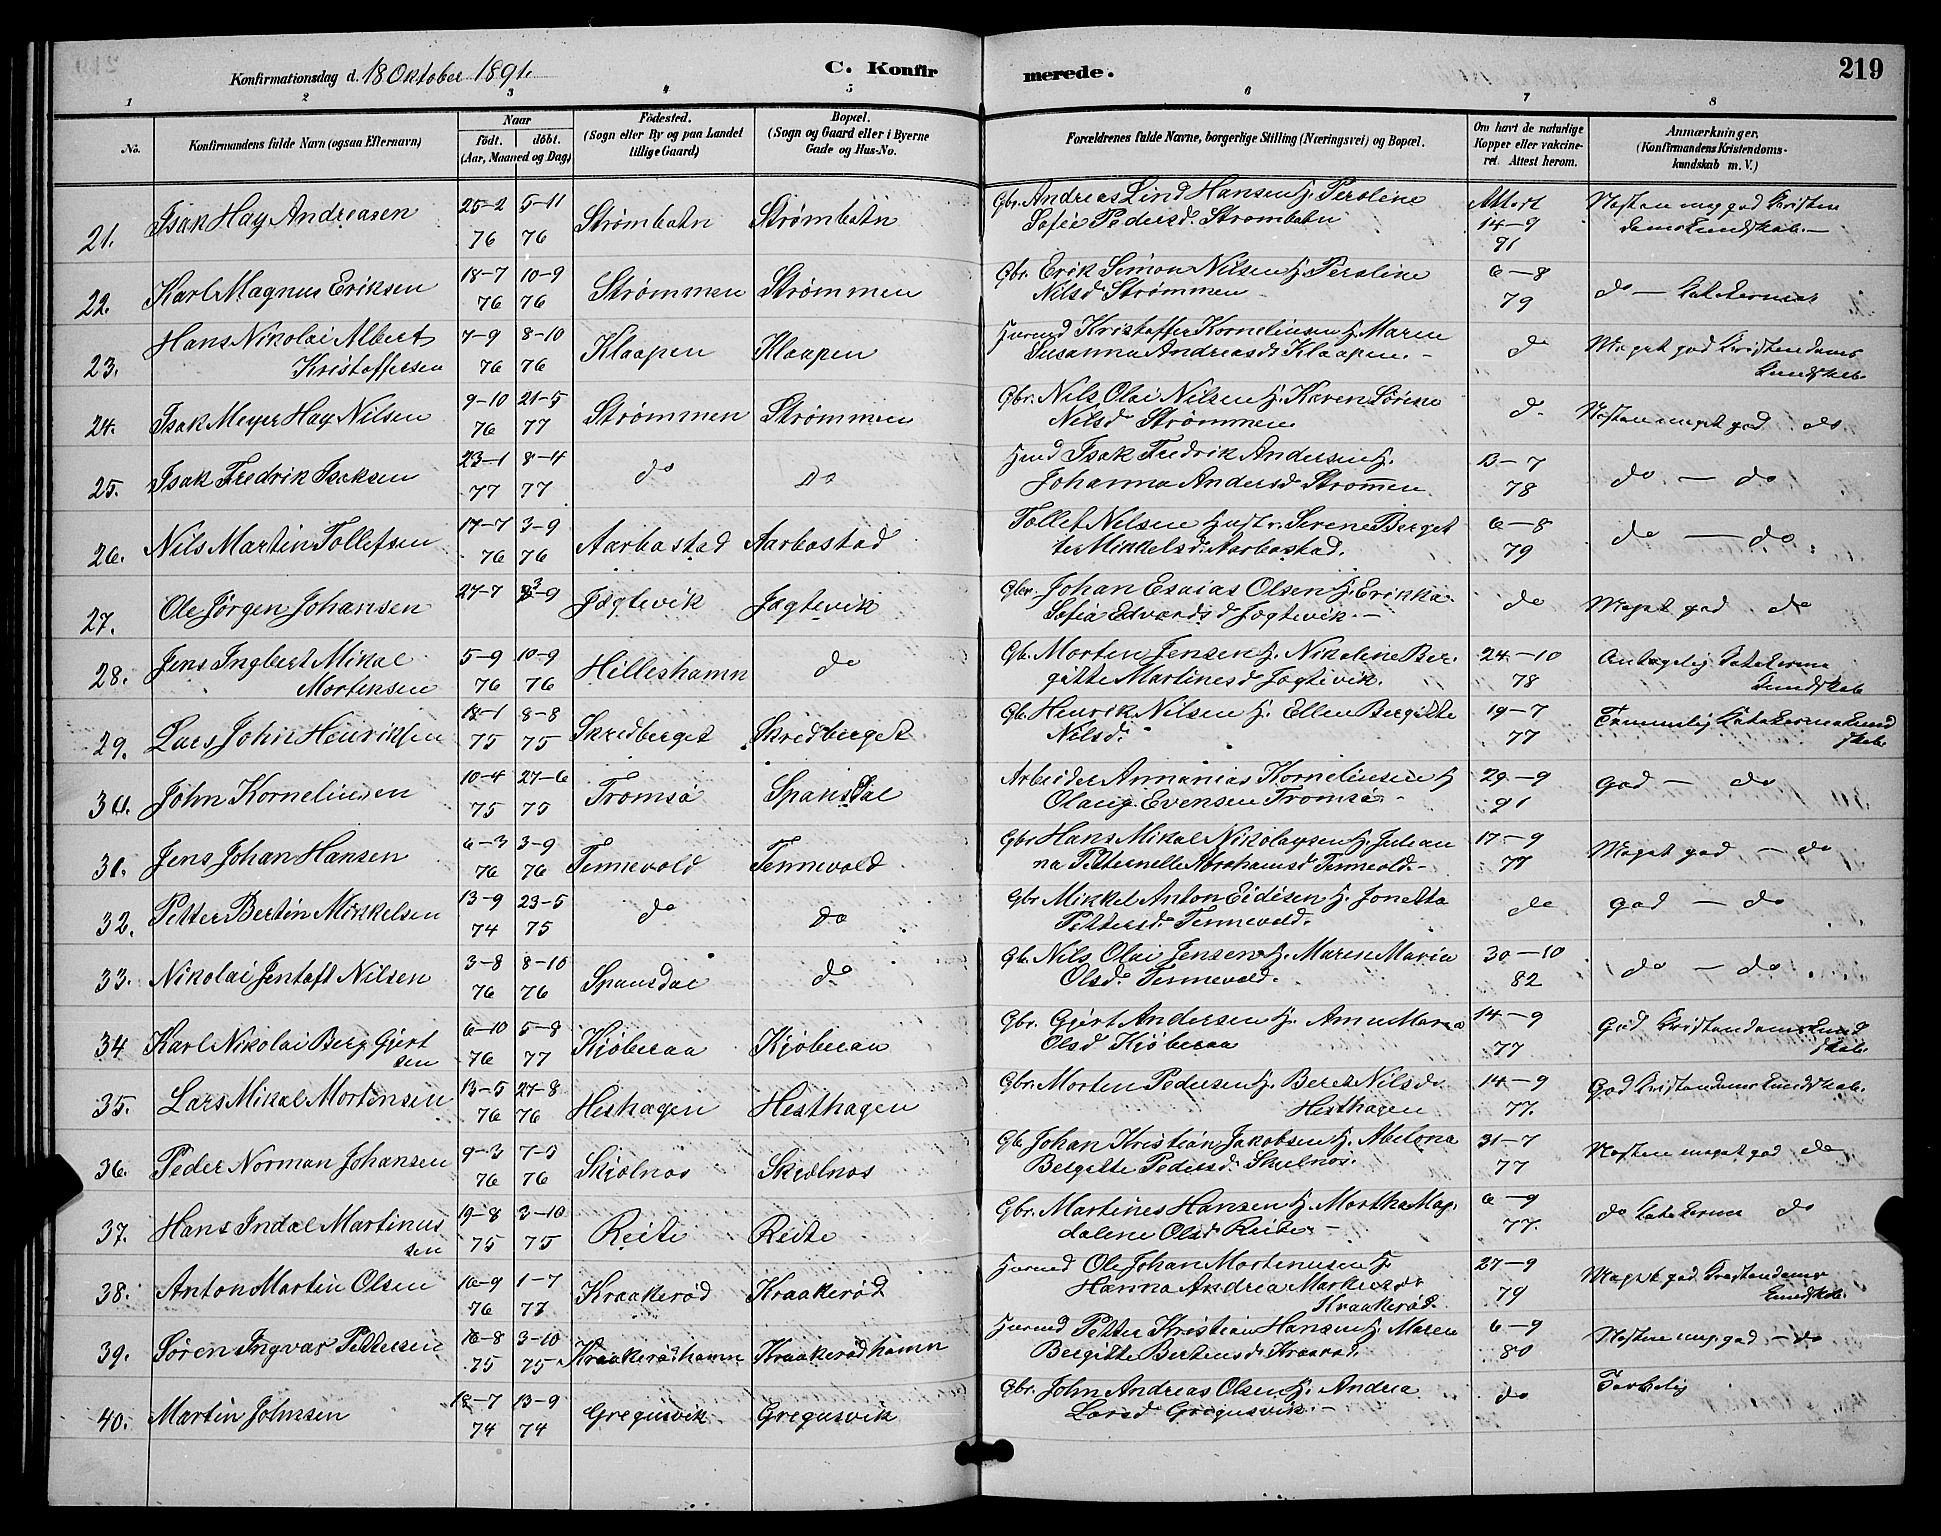 Konfirmationsdag d. 18 Oktober 1891.
C. Konfirmerede.
219
1 2 3 4 5 6 7 8
No.
Konfirmandens fulde Navn (ogsaa Efternavn)
Naar
födt. döbt.
(Aar, Maaned og Dag)
Födested.
(Sogn eller By og paa Landet
tillige Gaard)
Bopæl.
(Sogn og Gaard eller i Byerne
Gade og Hus-No.
Forældrenes fulde Navne, borgerlige Stilling (Næringsvei) og Bopæl.
Om havt de naturlige
Kopper eller vakcine-
ret. Attest herom.
Anmærkninger.
(Konfirmandens Kristendoms-
kundskab m. V.)
21. Isak Hay Andreasen 25-2 76 5-11 76 Strømbotn Strømbotn
Gbr. Andreas Lind Hansen H. Peroline
Sofie Pedersd. Strømbotn
Attest 14-9 91
Næsten meg god Kristen
domskundskab.-
22. Karl Magnus Eriksen 18-7 76 10-9 76 Strømmen Strømmen
Gbr. Erik Simon Nilsen H. Peroline
Nilsd Strømmen
6-8 79
do -
23. Hans Nikolai Albert
Kristoffersen 7-9 76 8-10 76 Klaapen Klaapen
Kristoffer Korneliusen H. Maren
Susanna Andreasd. Klaapen.-
do
Meget god Kristendoms
kundskab
24. Isak Meyer Hay Nilsen 9-10 76 21-5 77 Strømmen Strømmen
Gbr. Nils Olai Nilsen H. Karen Sørine
Nilsd Strømmen
do
Næsten meget god do
25. Isak Fredrik Isaksen 23-1 77 8-4 77 do do
Isak Fredrik Andersen H.
Johanna Andersd Strømmen
13-7 78
do - do
26. Nils Martin Tollefsen 17-7 76 3-9 76 Aarbostad Aarbostad
Tollef Nilsen Hustr. Serene Berget
te Mikkelsd. Aarbostad.
6-8 79
do - do
27. Ole Jörgen Johansen 27-7 3-9 Jøgtevik Jagtevik
Gbr. Johan Esaias Olsen H. Erikka
Sofia Edvardsd Jogtevik.-
do
Meget god do
28. Jens Ingbert Mikal
Mortensen 5-9 76 10-9 76 Hilleshamn do
Gb. Morten Jensen H. Nikoline Ber-
gitte Martinesd Jogtevik.
24-10 78
Antagelig Katekisme
kundskab
29. Lars John Henriksen 18-1 75 8-8 75 Skredberget Skredberget
Gb. Henrik Nilsen H. Ellen Bergitte
Nilsd.
19-7 77
Temmelig Katekismekund
skab
30. John Korneliussen 10-4 75 27-6 75 Tromsö Spansdal
Arbeider Annanias Korneliusen H
Olaug Evensen Tromsö -
29-9 91
god - do
31. Jens Johan Hansen 6-3 76 3-9 76 Tennevold Tennevold
Gbr Hans Mikal Nikolaysen H. Julian
na Petternelle Abrahamsd Tennevold.-
17-9 77
Meget god - do
32. Petter Bertin Mikkelsen 13-9 74 23-5 75 do do
Gbr Mikkel Anton Eidisen H. Jonetta
Pettersd. Tennevold.
do
god - do
33. Nikolai Jentoft Nilsen 3-8 76 8-10 76 Spansdal do
Gb. Nils Olai Jensen H. Maren Maria
Olsd. Tennevold.
30-10 82
do - do
34 Karl Nikolai Berg Gjert
sen 6-10 76 5-8 77 Kjøberaa Kjøberaa
Gbr. Gjert Andersen H. Anne Maria
Olsd Kjøberaa
14-9 77
God Kristendomskund
skab.
35. Lars Mikal Mortensen 13-5 76 27-8 76 Heshagen Hesthagen
Gbr. Morten Pedersen H. Beret Nilsd.
Hesthagen
14-9 77.
God Kristendomskundskab.
36. Peder Norman Johansen 9-3 76 7-5 76 Skjolnos Skjelnos
Gb. Johan Kristian Jakobsen H. Abelona
Bergitte Pedersd. Skjelnos.
31-7 77
Næsten meget god do
37. Hans Indal Martinus
sen 19-8 75 3-10 75 Reite Reite
Gbr. Martines Hansen H. Martha Mag-
dalene Olsd Reite -
6-9 77.
do Katekisme do
38. Anton Martin Olsen 16-9 76 1-7 77 Kraakerød Kraakerød
Ole Johan Mortenusen H.
Hanna Andrea Markusd.
Kraakerød.
27-9 79
Meget god Kristendoms
kundskab.
39. Søren Ingvar Pettersen 16-8 75 3-10 75 Kraakerødhamn Kraakerødhamn
Petter Kristian Hansen H. Maren
Bergitte Bertensd.
6-9 80
Næsten meg. god - do
40. Martin Johnsen 18-7 74 13-9 74 Gregusvik Gregusvik
Gbr. John Andreas Olsen H. Andrea
Larsd Gregusvik.-
do